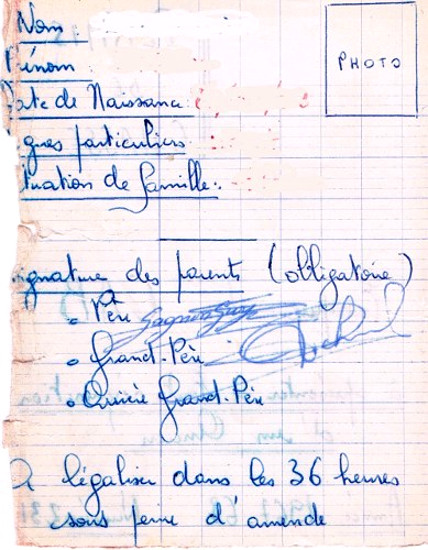 Nom
PHOTO
Prénom
Date de Naissance :
Signes particuliers
Situation de famille :
Signature des parents (obligatoire)
Père
Grand-Père
Arrière Grand-Père
A légaliser dans les 36 heures
sous peine d'amende